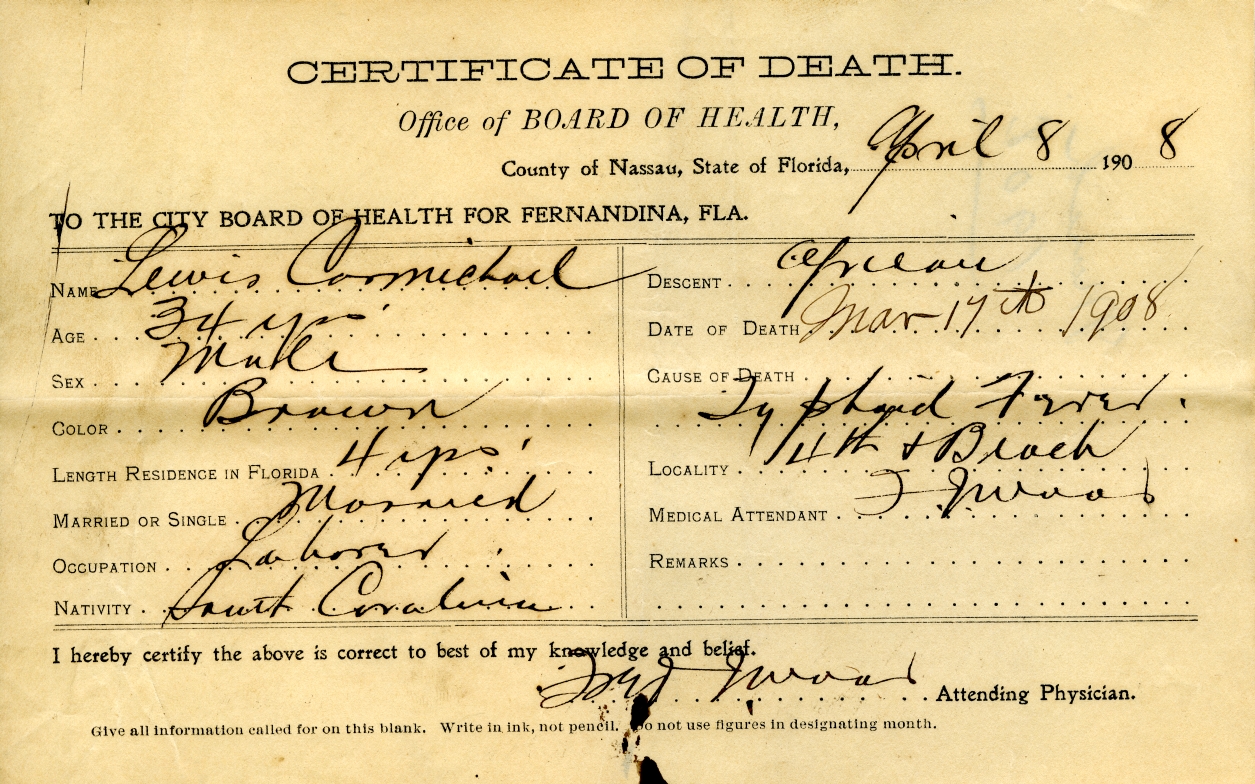 CERTIFICATE OF DEATH.
Office of BOARD OF HEALTH,
County of Nassau, State of Florida, April 8 1908
TO THE CITY BOARD OF HEALTH FOR FERNANDINA, FLA.
NAME Lewis Carmichael
AGE 34 yrs
SEX Male
COLOR Brown
LENGTH RESIDENCE IN FLORIDA 4 yrs
MARRIED OR SINGLE Married
OCCUPATION Laborer
NATIVITY South Carolina
DESCENT African
DATE OF DEATH Mar 17th 1908
CAUSE OF DEATH
Typhoid Fever.
LOCALITY 4th & Beach
MEDICAL ATTENDANT
REMARKS
I hereby certify the above is correct to best of my knowledge and belief.
Attending Physician.
Give all information called for on this blank. Write in ink, not pencil. Do not use figures in designating month.